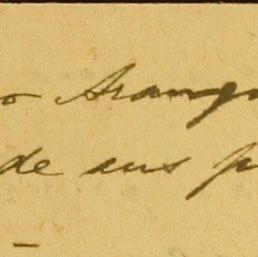 o Arang
de sus p